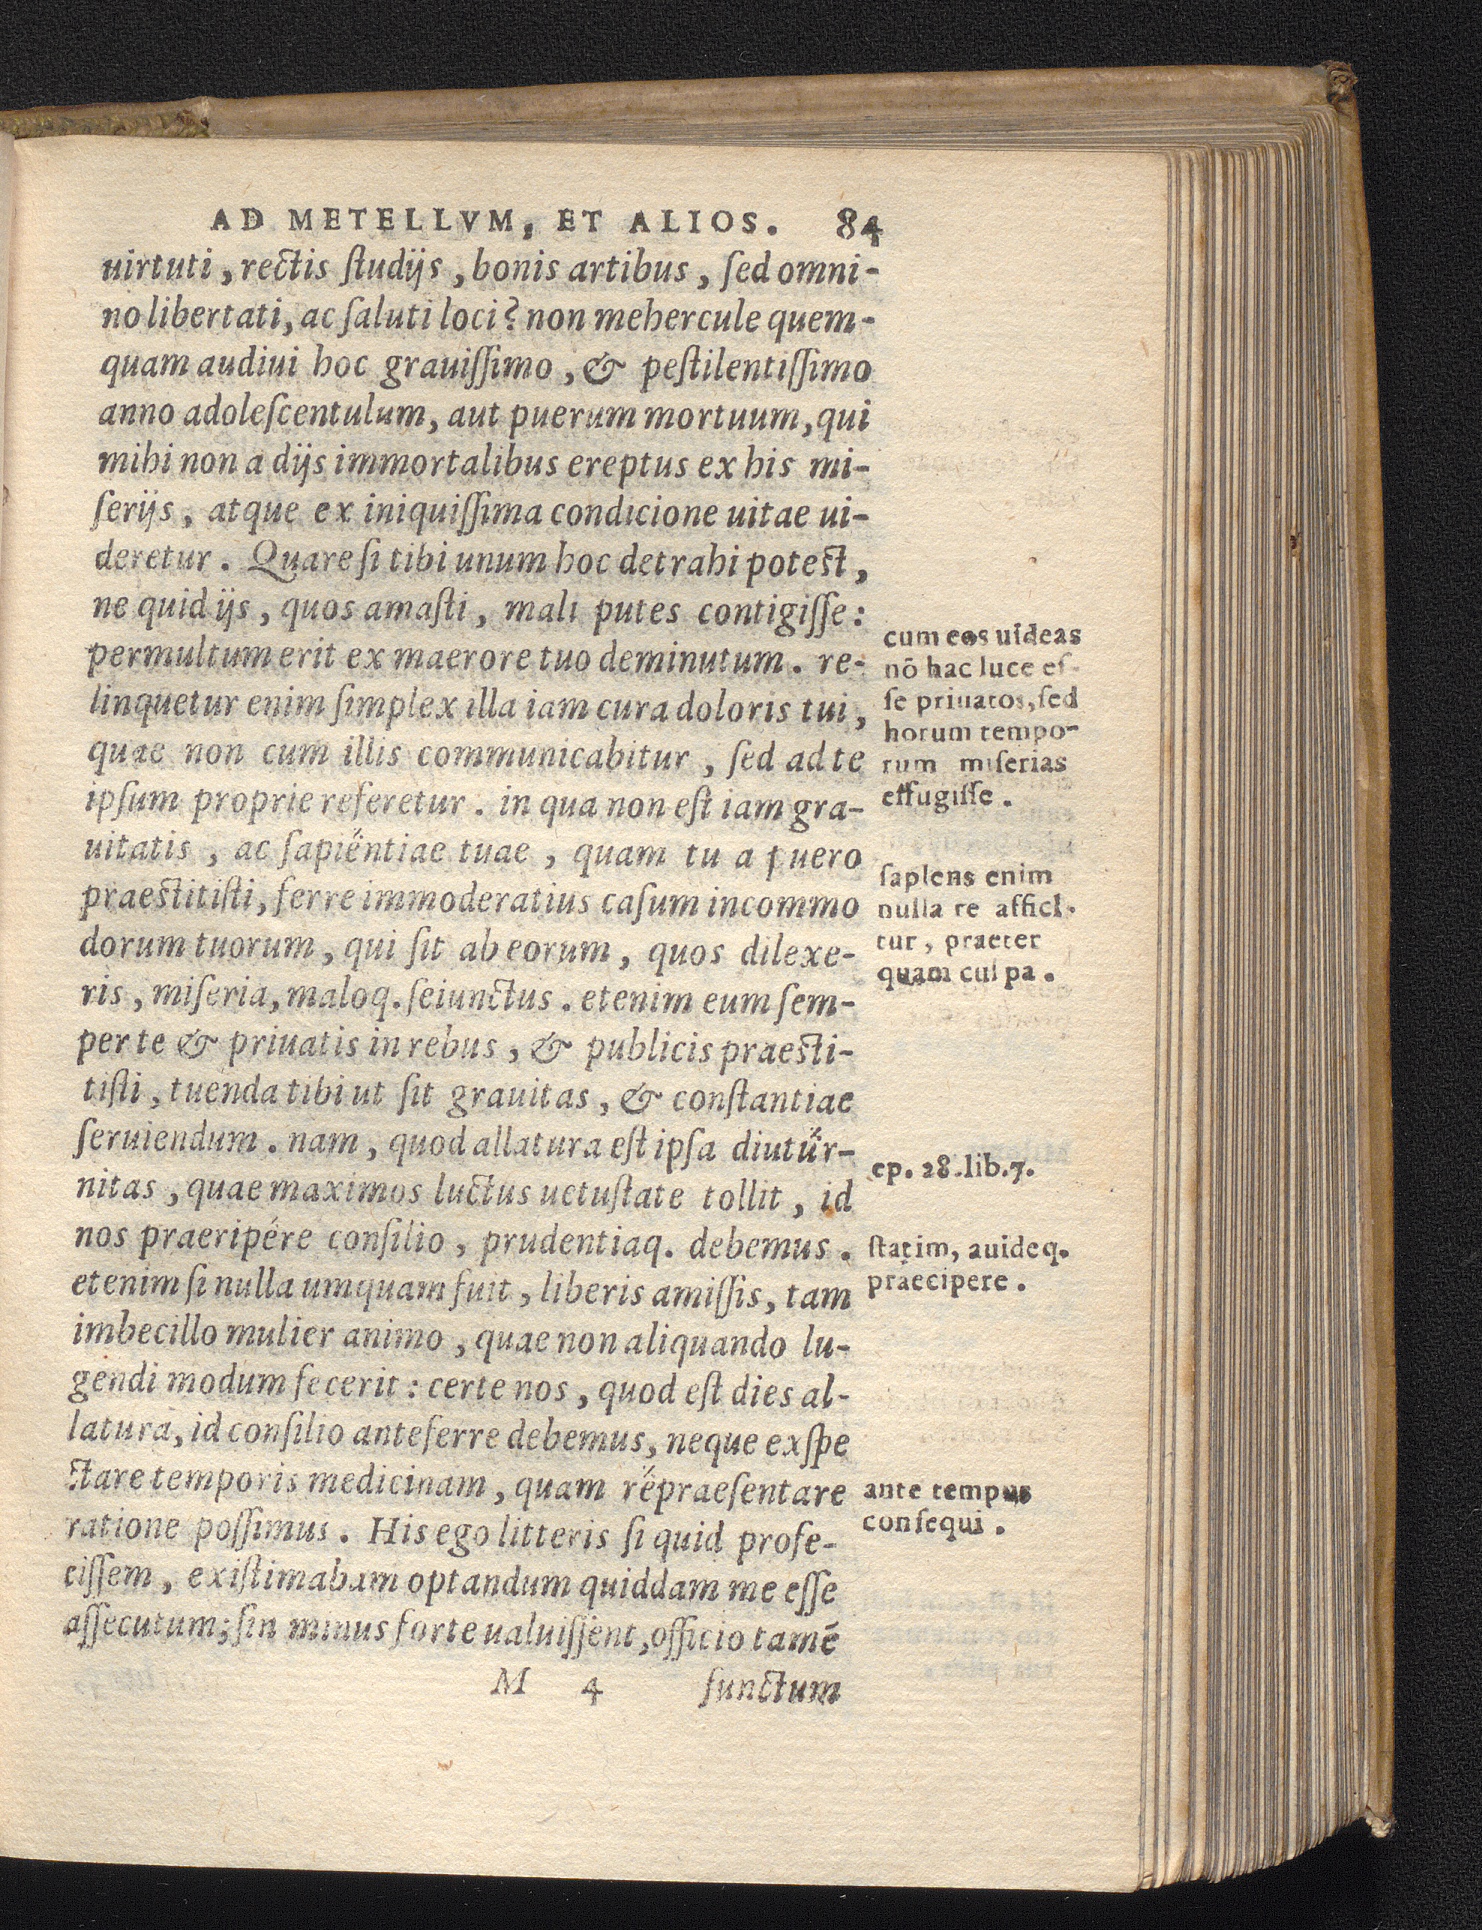 AD METELLVM, ET ALIOS. 84
uirtuti, rectis ſtudijs, bonis artibus, ſed omni-
no libertati, ac ſaluti loci? non mehercule quem-
quam audiui hoc grauiſſimo, & peſtilentiſſimo
anno adoleſcentulum, aut puerum mortuum, qui
mihi non a dijs immortalibus ereptus ex his mi-
ſerijs, atque ex iniquiſſima condicione uitae ui-
deretur. Quare ſi tibi unum hoc detrahi poteſt,
ne quid ijs, quos amaſti, mali putes contigiſſe:
permultum erit ex maerore tuo deminutum. re-
linquetur enim ſimplex illa iam cura doloris tui,
quae non cum illis communicabitur, ſed ad te
ipſum proprie referetur. in qua non eſt iam gra-
uitatis, ac ſapi\u0065̋ntiae tuae, quam tu a puero
praeſtitiſti, ferre immoderatius caſum incommo
dorum tuorum, qui ſit ab eorum, quos dilexe-
ris, miſeria, maloq. ſeiunctus. etenim eum ſem-
per te & priuatis in rebus, & publicis praeſti-
tiſti, tuenda tibi ut ſit grauitas, & conſtantiae
ſeruiendum. nam, quod allatura eſt ipſa diutűr-
nitas, quae maximos luctus uetuſtate tollit, id
nos praeripére conſilio, prudentiaq. debemus.
etenim ſi nulla umquam fuit, liberis amiſſis, tam
imbecillo mulier animo, quae non aliquando lu-
gendi modum fecerit: certe nos, quod eſt dies al-
latura, id conſilio anteferre debemus, neque exſpe
ctare temporis medicinam, quam re̋praeſentare
ratione poſſimus. His ego litteris ſi quid profe-
ciſſem, exiſtimabam optandum quiddam me eſſe
aſſecutum; ſin minus forte ualuiſſent, officio tamē
M 4 functum
cum eos uideas
nō hac luce eſ-
ſe priuatos, ſed
horum tempo-
rum miſerias
effugiſſe.
ſapiens enim
nulla re affici-
tur, praeter
quam culpa.
ep. 28. lib. 7.
ſtatim, auideq.
praecipere.
ante tempus
conſequi.